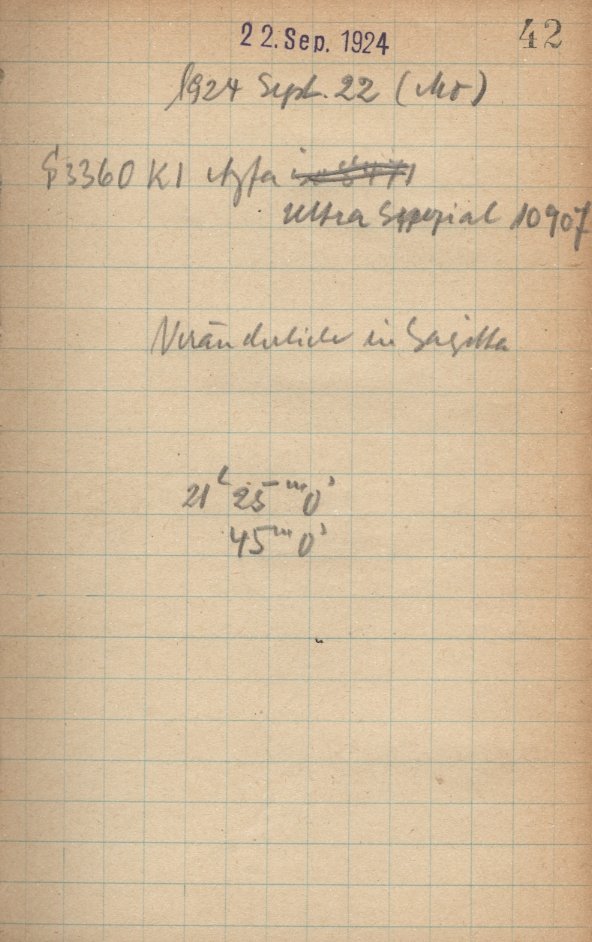 22. Sep. 1924
42
1924 Sept. 22 (Mo)
S3360 K1 Agfa
Ultra Spezial 10907
Veränderliche in Sagitta
21h 25m 0s
45m 0s